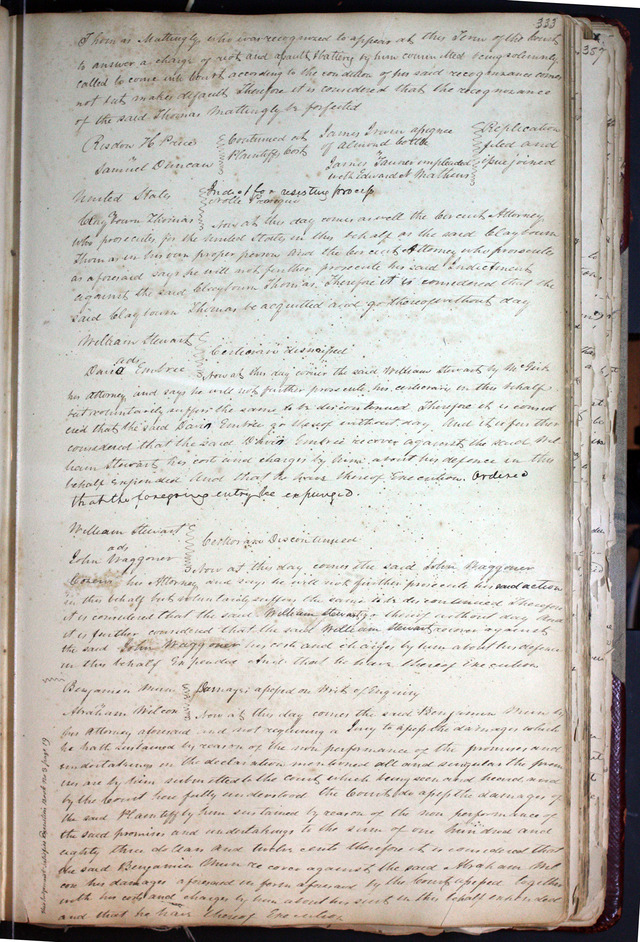 333
357
Thomas Mattingly who was recognized to appear at this Term of the Court
to answer a charge of riot and assault & battery by him committed being solemnly
called to come into Court according to the condition of his said recognizance comes
not but makes default Therefore it is considered that the recognizance
of the said Thomas Mattingly be forfeited
Risdon H. Price
Samuel Duncan
Continued at
Plaintiffs Cost
James Irwin assignee
of Almond Cottle
James Tanner impleaded
with Edward N Mathews
Replication
filed and
issue joined
United States
Claybourn Thomas
Indict for resisting process
Nolle Prosequi
Now at this day comes as well the Circuit Attorney
who prosecutes for the United States in this behalf as the said Claybourn
Thomas in his own proper person And the Circuit Attorney who prosecutes
as aforesaid says he will not further prosecute his said Indictment
against the said Claybourn Thomas. Therefore it is considered that the
said Claybourn Thomas be acquitted and go thereof without day
William Stewart
ads
David Embree
Certiorari dismissed
Now at this day comes the said William Stewart by McGirk
his attorney and says he will not further prosecute his certiorari in this behalf
but voluntarily suffers the same to be discontinued Therefore it is consid
ered that the said David Embree go thereof without day And it is further
considered that the said David Embree recover against the said Wil
liam Stewart his cost and charges by him about his defence in this
behalf Expended And that he have thereof Execution. Ordered
that the foregoing entry be expunged.
William Stewart
ads
John Waggoner
Certiorari Discontinued
Now at this day comes the said John Waggoner
his Attorney and says he will not further prosecute his said action
in this behalf but voluntarily suffers the same to be discontinued Therefore
it is considered that the said William Stewart go thereof without day And
it is further considered that the said William Stewart recover against
the said John Waggoner his cost and charges by him about his defence
in this behalf Expended And that he have thereof Execution
Benjamin Munn
Abraham Wilcox
Damages assessed on Writ of Enquiry
Now at this day comes the said Benjamin Munn by
his Attorney aforesaid and not requiring a Jury to assess the damages which
he hath sustained by reason of the non performance of the promises and
undertakings in the declaration mentioned all and singular the prem
ises are by him submitted to the court which being seen and heard and
by the Court here fully understood the Court do assess the damages of
the said Plaintiff by him sustained by reason of the non performance of
the said promises and undertakings to the sum of one hundred and
eighty three dollars and twelve cents therefore it is considered that
the said Benjamin Munn recover against the said Abraham Wil
cox his damages aforesaid in form aforesaid by the Court assessed together
with his costs and charges by him about his suit in this behalf expended
and that he have thereof Execution